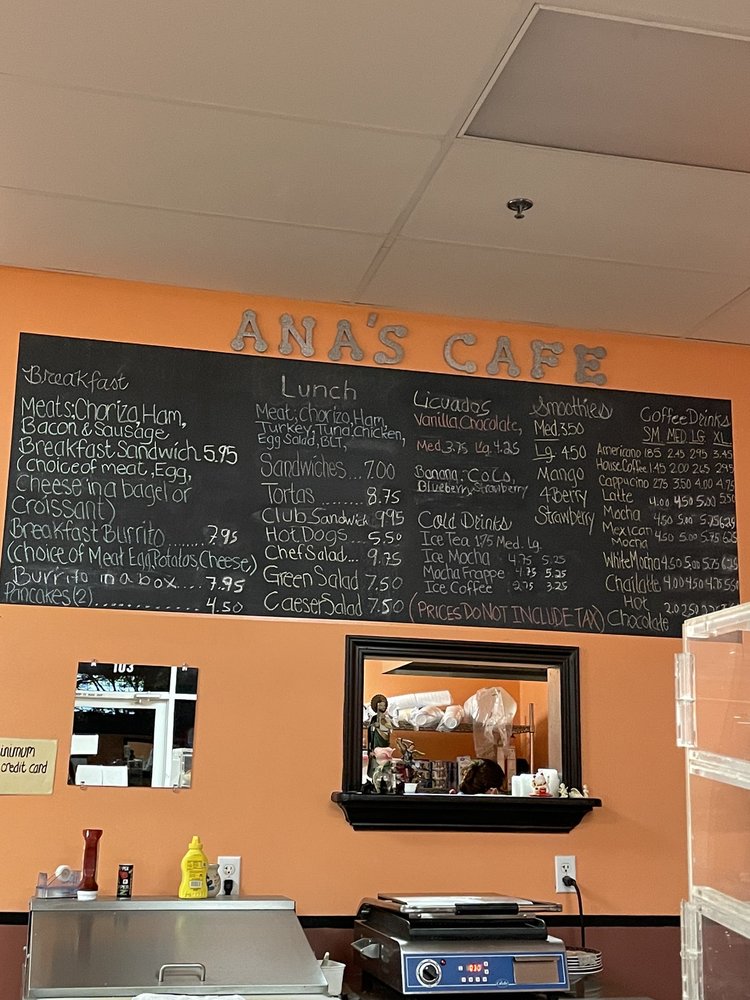 ANA'S CAFE
Breakfast
Meats: Chorizo, Ham,
Bacon & Sausage
Breakfast Sandwich 5.95
(choice of meat, Egg,
Cheese in a bagel or
Croissant)
Breakfast Burrito ....... 7.95
(choice of Meat Egg, Potatos, Cheese)
Burrito in a box ....... 7.95
Pancakes (2) ................ 4.50
Lunch
Meat: Chorizo, Ham,
Turkey, Tuna, Chicken,
Egg Salad, BLT,
Sandwiches .... 7.00
Tortas ........ 8.75
Club Sandwich 9.95
Hot Dogs ..... 5.50
Chef Salad .... 9.75
Green Salad 7.50
Caeser Salad 7.50
Licuados
Vanilla, Chocolate,
Med. 3.75 Lg. 4.25
Banana,
Blueberry, Strawberry
Cold Drinks
Ice Tea 1.75 Med. Lg.
Ice Mocha 4.75 5.25
Mocha Frappe 4.75 5.25
Ice Coffee 2.75 3.25
(PRICES DO NOT INCLUDE TAX)
Smoothies
Med. 3.50
Lg. 4.50
Mango
4 Berry
Strawberry
Coffee Drinks
SM MED LG XL
Americano 1.85 2.45 2.95 3.45
House Coffee 1.45 2.00 2.65 2.95
Cappucino 2.75 3.50 4.00 4.75
Latte 4.00 4.50 5.00 5.50
Mocha 4.50 5.00 5.75 6.25
Mexican
Mocha 4.50 5.00 5.75 6.25
White Mocha 4.50 5.00 5.75 6.25
Chai latte 4.00 4.50 4.75 5.50
Hot
Chocolate 2.0 2.50
103
inimum
credit card